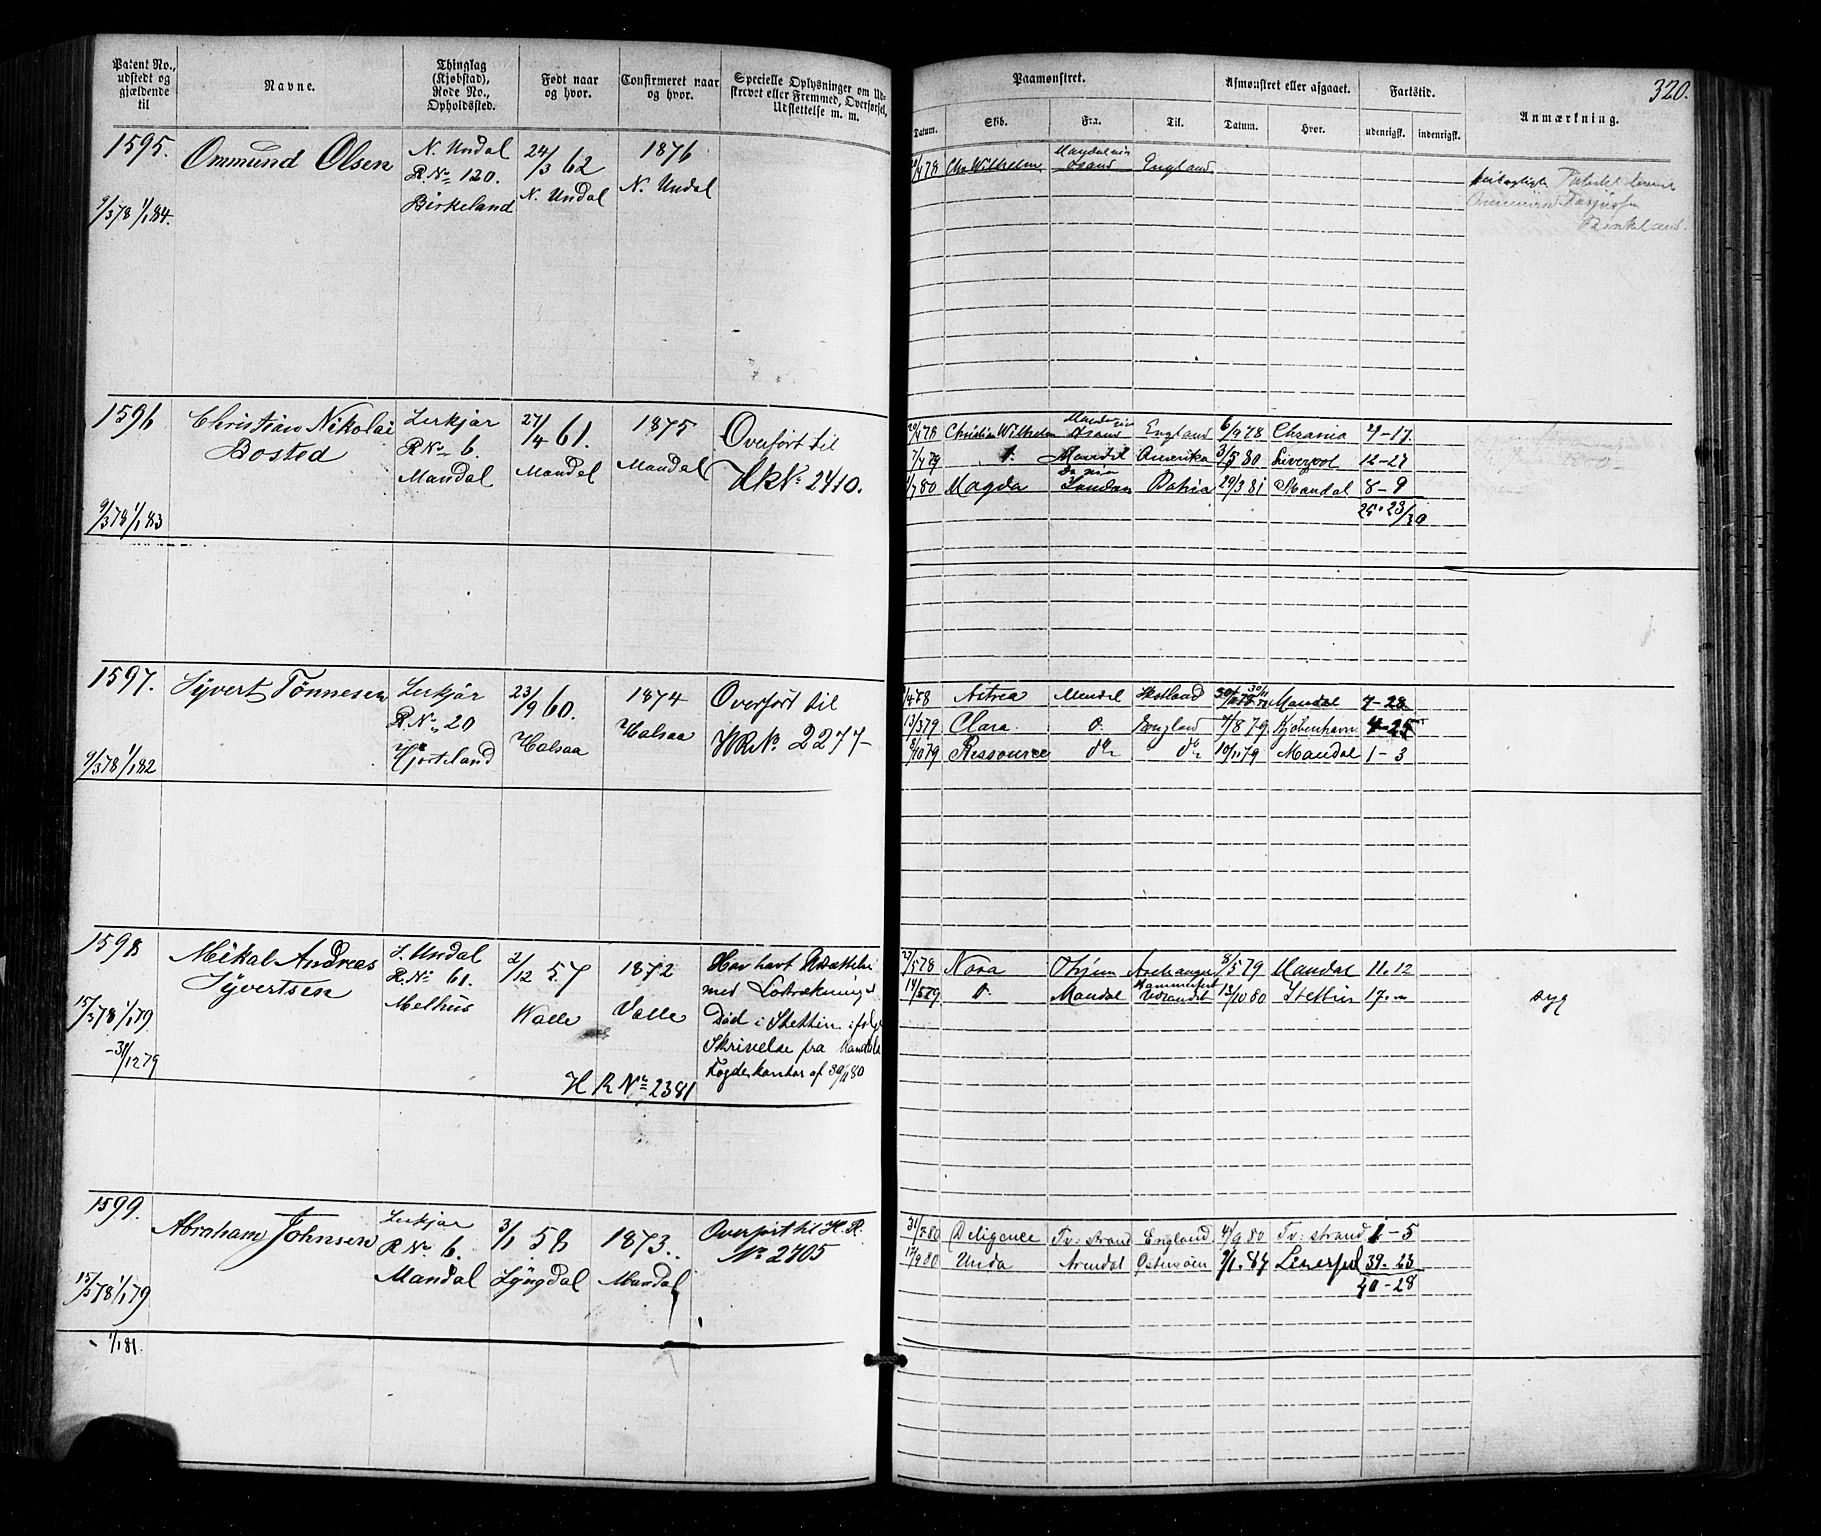 320.
Patent No., udstedt og gjældende til
Navne.
Thinglag (Kjøbstad), Rode No., Opholdssted.
Født naar og hvor.
Confirmeret naar og hvor.
Specielle Oplysninger om Ud-
skrevet eller Fremmed, Overførsel,
Udslettelse m. m.
Paamønstret.
Afmønstret eller afgaaet.
Fartstid.
Anmærkning.
Datum. Skb. Fra. Til. Datum. Hvor. udenrigsk. indenrigsk.
1595. Ommund Olsen N. Undal 24/3 62 1876
R. No 120. N. Undal N. Undal
Birkeland
9/3 78 1/1 84.
Chr Wilhelm England
1596 Christian Nikolai Lerkjær 27/4 61. 1875 Overført til
Bosted R No 6. Mandal Mandal H R No 2410.
Mandal
9/3 78 1/1 83
Christian Wilhelm England 6/9 78 Chrania 4-17
7/4 79 Mandal Amerika 3/5 80 Liverpool 12-27
Magda Bahia 29/3 81 Mandal 8-9
25-23/30
1597. Syvert Tønnesen Lerkjær 23/9 60. 1874 Overført til
R. No 20 Halsaa Halsaa H R No 2277
Hjorteland
9/3 78 1/1 82
Astrea Mandal Mandal 7-28
13/3 79 Clara England 7/8 79 Kjøbenhavn 4-25
8/10 79 Ressource do do 10/11 79 Mandal 1-3
1598 Mikal Andreas S. Undal 2/12 57 1872
Syvertsen R. No 61. Walle Valle
Melhus
15/3 78 1/1 79
- 31/12 79
Har havt Udsættelse
med Lodtrækningen
Død i Stettin ifølge
Skrivelse fra Mandals
Fogderkontor af 30/11 80
H R No 2381
27/5 78 Nora Archangel 8/5 79 Mandal 11.12
14/5 79 Mandal Hammerfest 13/10 80 Stettin 17.
syg
1599. Abraham Johnsen Lerkjær 3/1 58 1873. Overført til H. R.
R No 6. Lyngdal Mandal No 2705
Mandal
15/3 78 1/1 79
- 1/1 81.
31/3 80 Deligence Tv: strand England 4/9 80 Tv: strand 1-5
17/9 80 Unda Arendal Østersøen 7/1. 84 Liverpool 39-23
40-28